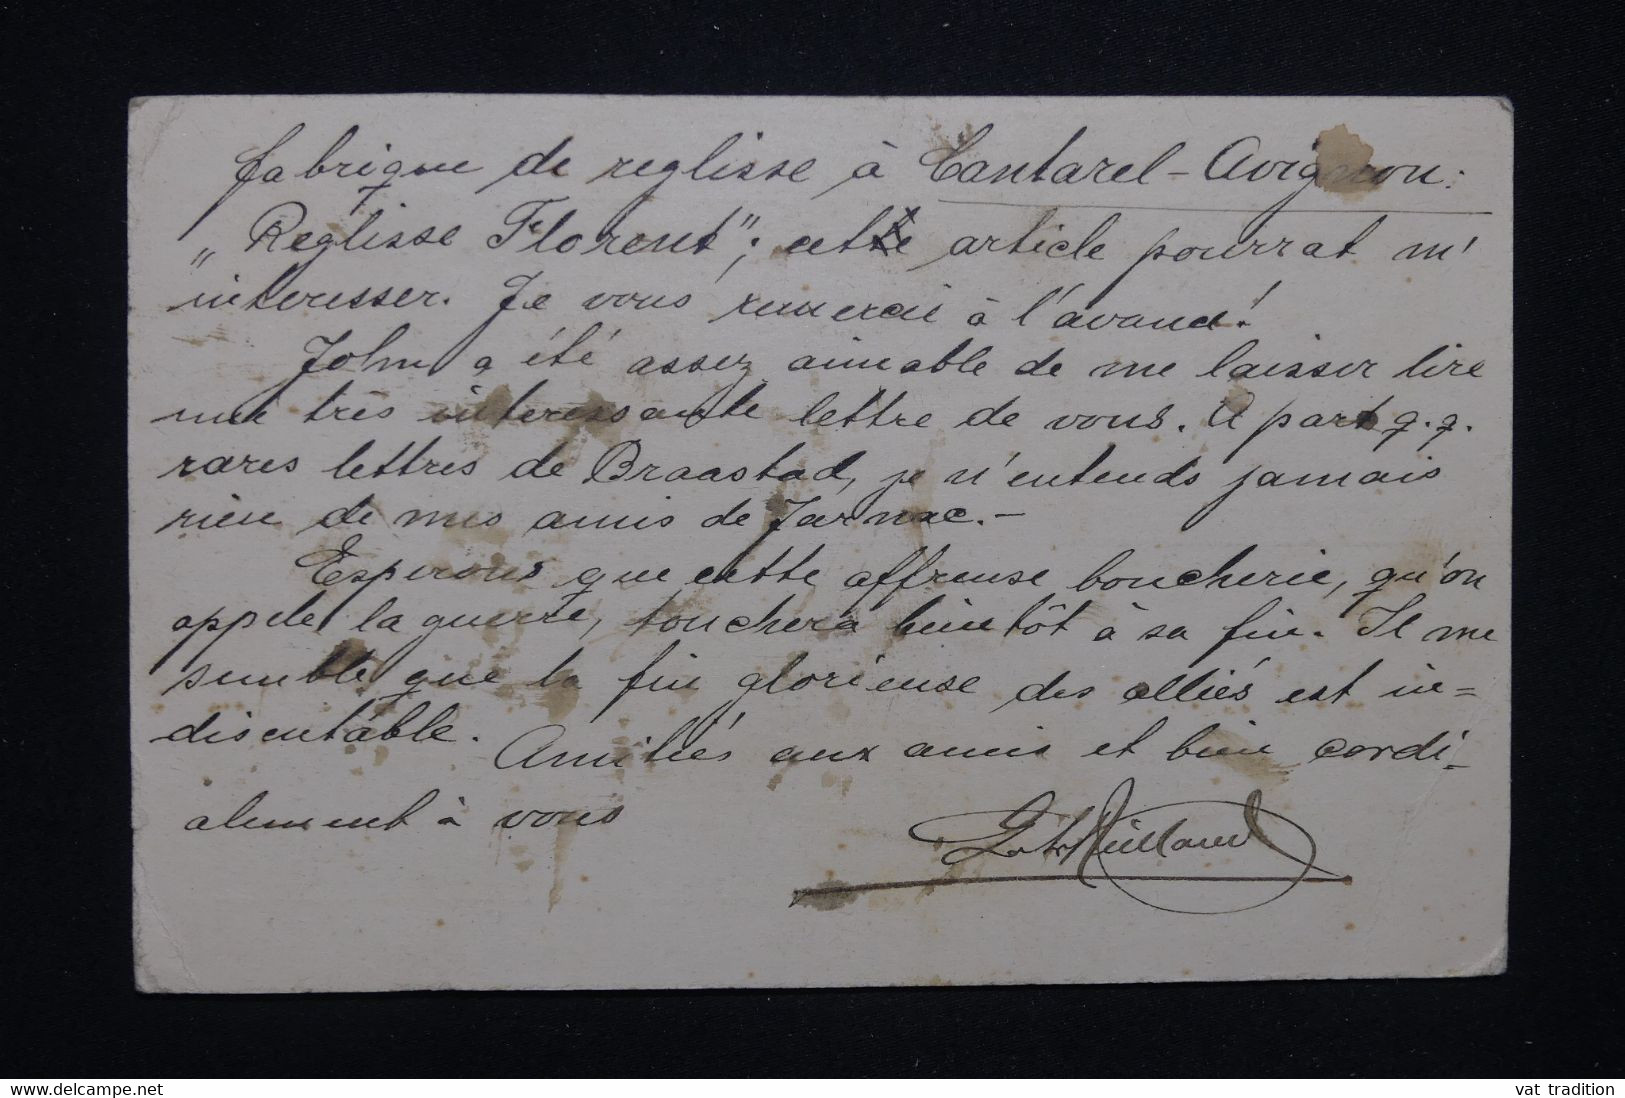 fabrique de reglisse à Cantarel - Avignon:
„Reglisse Florent"; cette article pourrat m'
interesser. Je vous remercie à l'avance!
John a été assez aimable de me laisser lire
une très interessante lettre de vous. A part q.q.
rares lettres de Braastad, je n'entends jamais
rien de mes amis de Jarnac. -
Esperons que cette affreuse boucherie, qu'on
appele la guerre, touchera bientôt à sa fin. Il me
semble que la fin glorieuse des alliés est in=
discutable. Amitiés aux amis et bien cordi=
alement à vous
vat_tradition